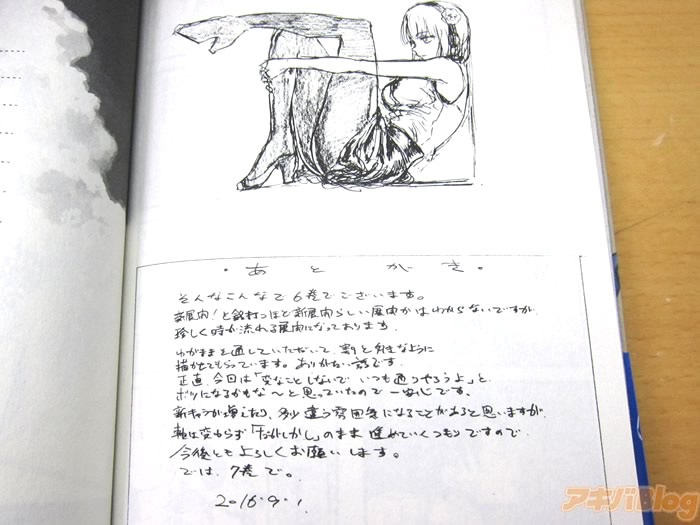 ・あとがき。
そんなこんなで6巻でございます。
新展開！と銘打つほど新展開らしい展開かはわからないですが
珍しく時が流れる展開になっております.
わがままを通していただいて、割と好きなように
描かせてもらっています。ありがたい話です.
正直 今回は「変なことしないで いつも通りやろうよ」と
ボツになるかもな〜と思っていたので一安心です、
新キャラが増えたり、多少違う雰囲気になることがあると思いますが
軸は変わらず「だがしかし」のまま進めていくつもりですので
今後ともよろしくお願いします。
では、7巻で。
2016.9.1
アキバBlog